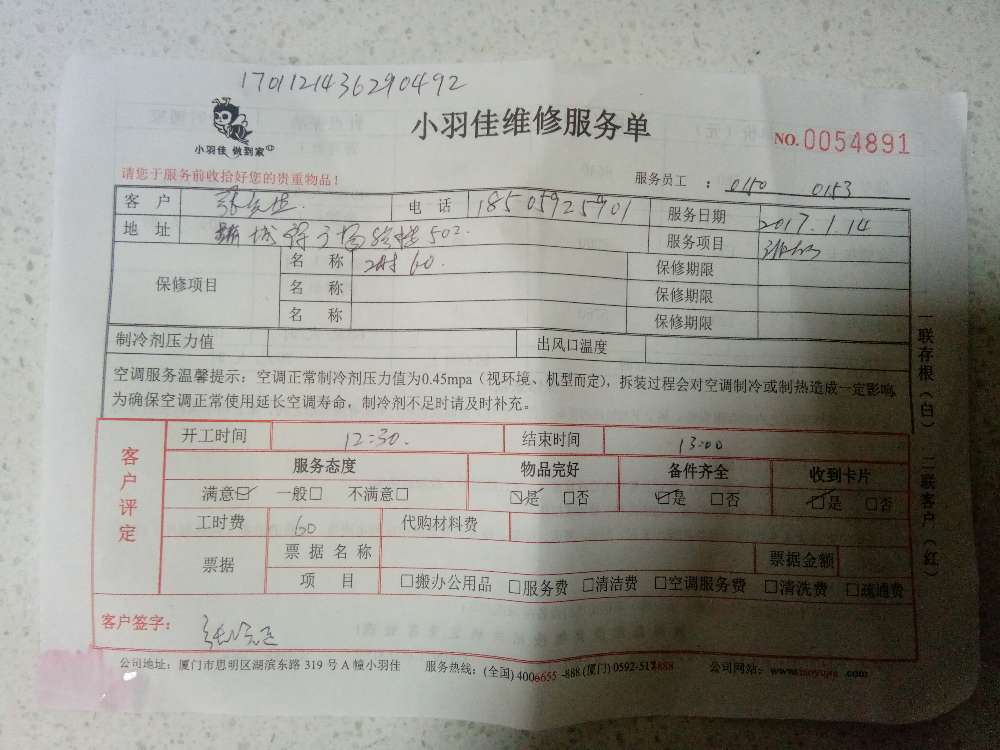 1701121436290492
小羽佳维修服务单
小羽佳 做到家
NO.0054891
请您于服务前收拾好您的贵重物品!
服务员工 : 0150 0153
客 户 电 话 18505925901 服务日期 2017.1.14
地 址 502. 服务项目
保修项目 名 称 60. 保修期限
名 称 保修期限
名 称 保修期限
制冷剂压力值 出风口温度
空调服务温馨提示:空调正常制冷剂压力值为0.45mpa(视环境、机型而定),拆装过程会对空调制冷或制热造成一定影响
为确保空调正常使用延长空调寿命,制冷剂不足时请及时补充。
一联存根(白) 二联客户(红)
客户评定
开工时间 12:30. 结束时间 13:00
服务态度 物品完好 备件齐全 收到卡片
满意☑ 一般□ 不满意□ ☑是 □否 ☑是 □否 ☑是 □否
工时费 60 代购材料费
票据 票 据 名 称 票据金额
项 目 □搬办公用品 □服务费 □清洁费 □空调服务费 □清洗费 □疏通费
客户签字:
公司地址:厦门市思明区湖滨东路 319 号 A 幢小羽佳 服务热线:(全国) 4006655 -888 (厦门) 0592-517888 公司网站: